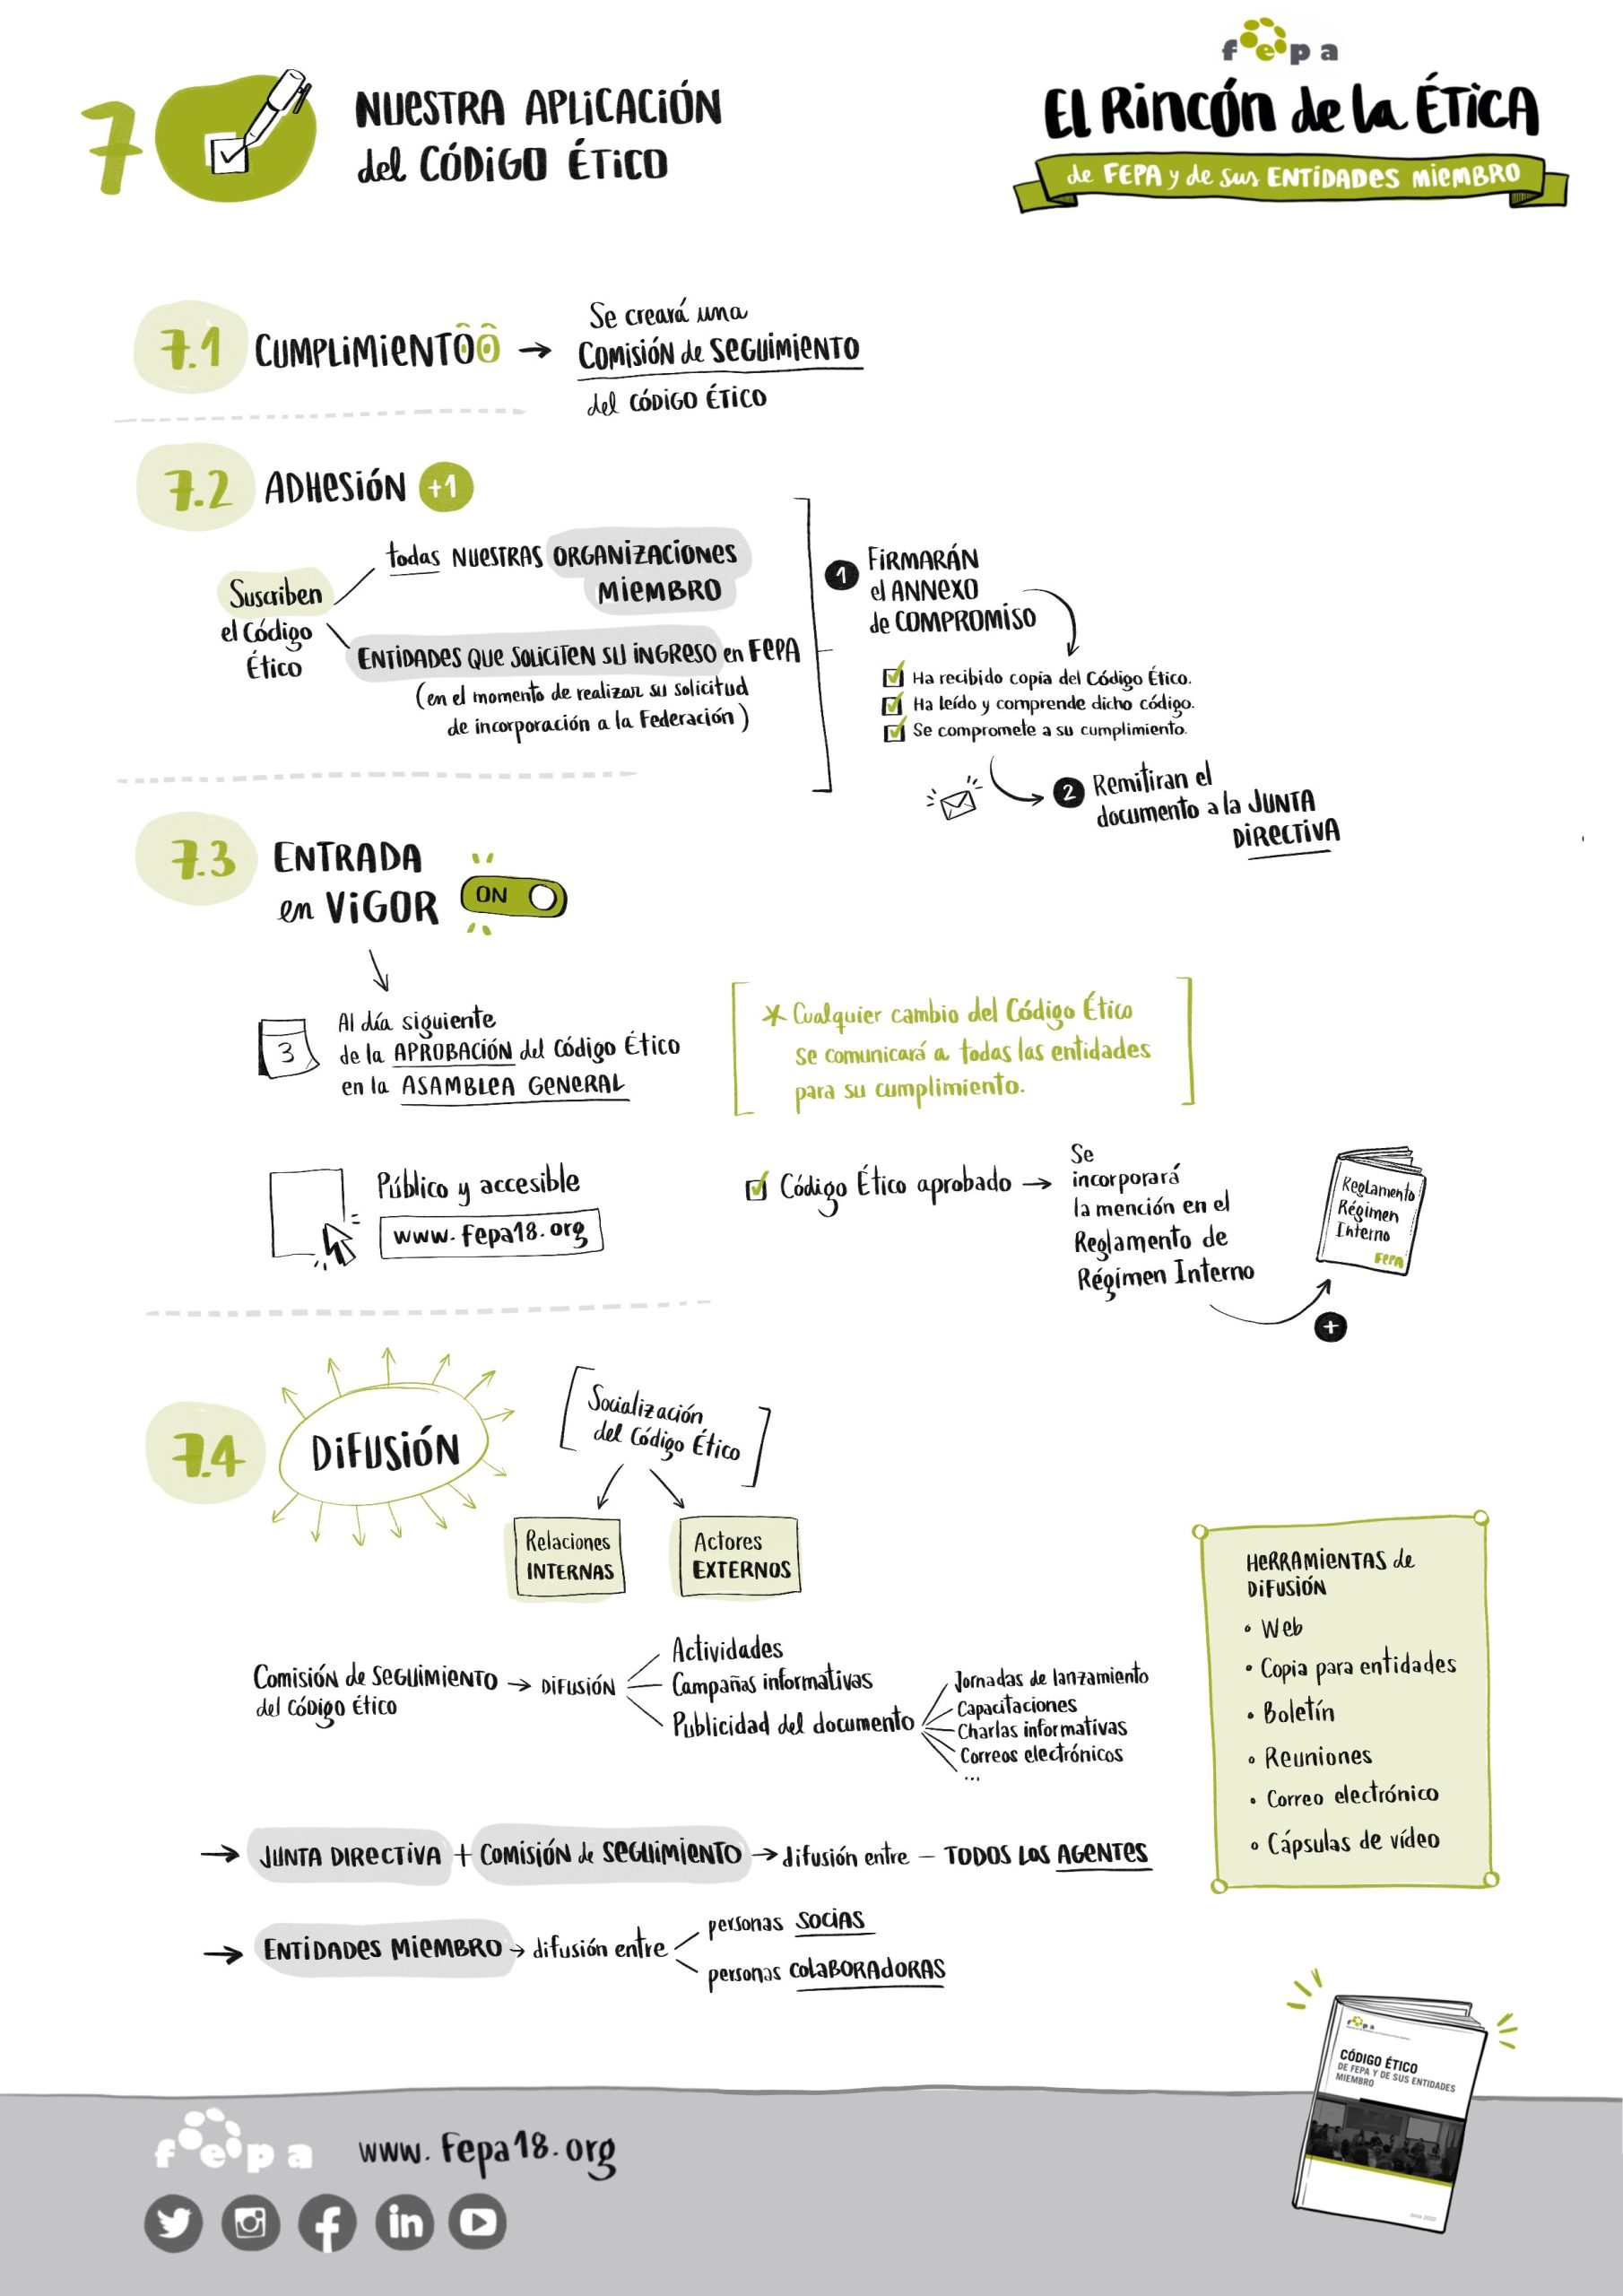 fepa
El Rincón de la Ética
de FEPA y de sus ENTIDADES MIEMBRO
7
NUESTRA APLICACIÓN
del CÓDIGO ÉTICO
7.1 CUMPLIMIENTO →
Se creará una
COMISIÓN de SEGUIMIENTO
del CÓDIGO ÉTICO
7.2 ADHESIÓN +1
Suscriben
el Código
Ético
todas NUESTRAS ORGANIZACIONES
MIEMBRO
ENTIDADES QUE SOLICITEN SU INGRESO en FEPA
(en el momento de realizar su solicitud
de incorporación a la Federación)
1 FIRMARÁN
el ANNEXO
de COMPROMISO
Ha recibido copia del Código Ético.
Ha leído y comprende dicho código.
Se compromete a su cumplimiento.
2 Remitiran el
documento a la JUNTA
DIRECTIVA
7.3 ENTRADA
en VIGOR
ON
3
Al día siguiente
de la APROBACIÓN del Código Ético
en la ASAMBLEA GENERAL
* Cualquier cambio del Código Ético
se comunicará a todas las entidades
para su cumplimiento.
Público y accesible
www.fepa18.org
Código Ético aprobado →
Se
incorporará
la mención en el
Reglamento de
Régimen Interno
Reglamento
Régimen
Interno
FEPA
+
7.4 DIFUSIÓN
[Socialización
del Código Ético]
Relaciones
INTERNAS
Actores
EXTERNOS
Comisión de SEGUIMIENTO → DIFUSIÓN
del CÓDIGO ÉTICO
Actividades
Campañas informativas
Publicidad del documento
Jornadas de lanzamiento
Capacitaciones
Charlas informativas
Correos electrónicos
...
→ JUNTA DIRECTIVA + COMISIÓN de SEGUIMIENTO → difusión entre – TODOS LOS AGENTES
→ ENTIDADES MIEMBRO → difusión entre
personas SOCIAS
personas COLABORADORAS
HERRAMIENTAS de
DIFUSIÓN
• Web
• Copia para entidades
• Boletín
• Reuniones
• Correo electrónico
• Cápsulas de vídeo
fepa
CÓDIGO ÉTICO
DE FEPA Y DE SUS ENTIDADES
MIEMBRO
fepa
www.fepa18.org